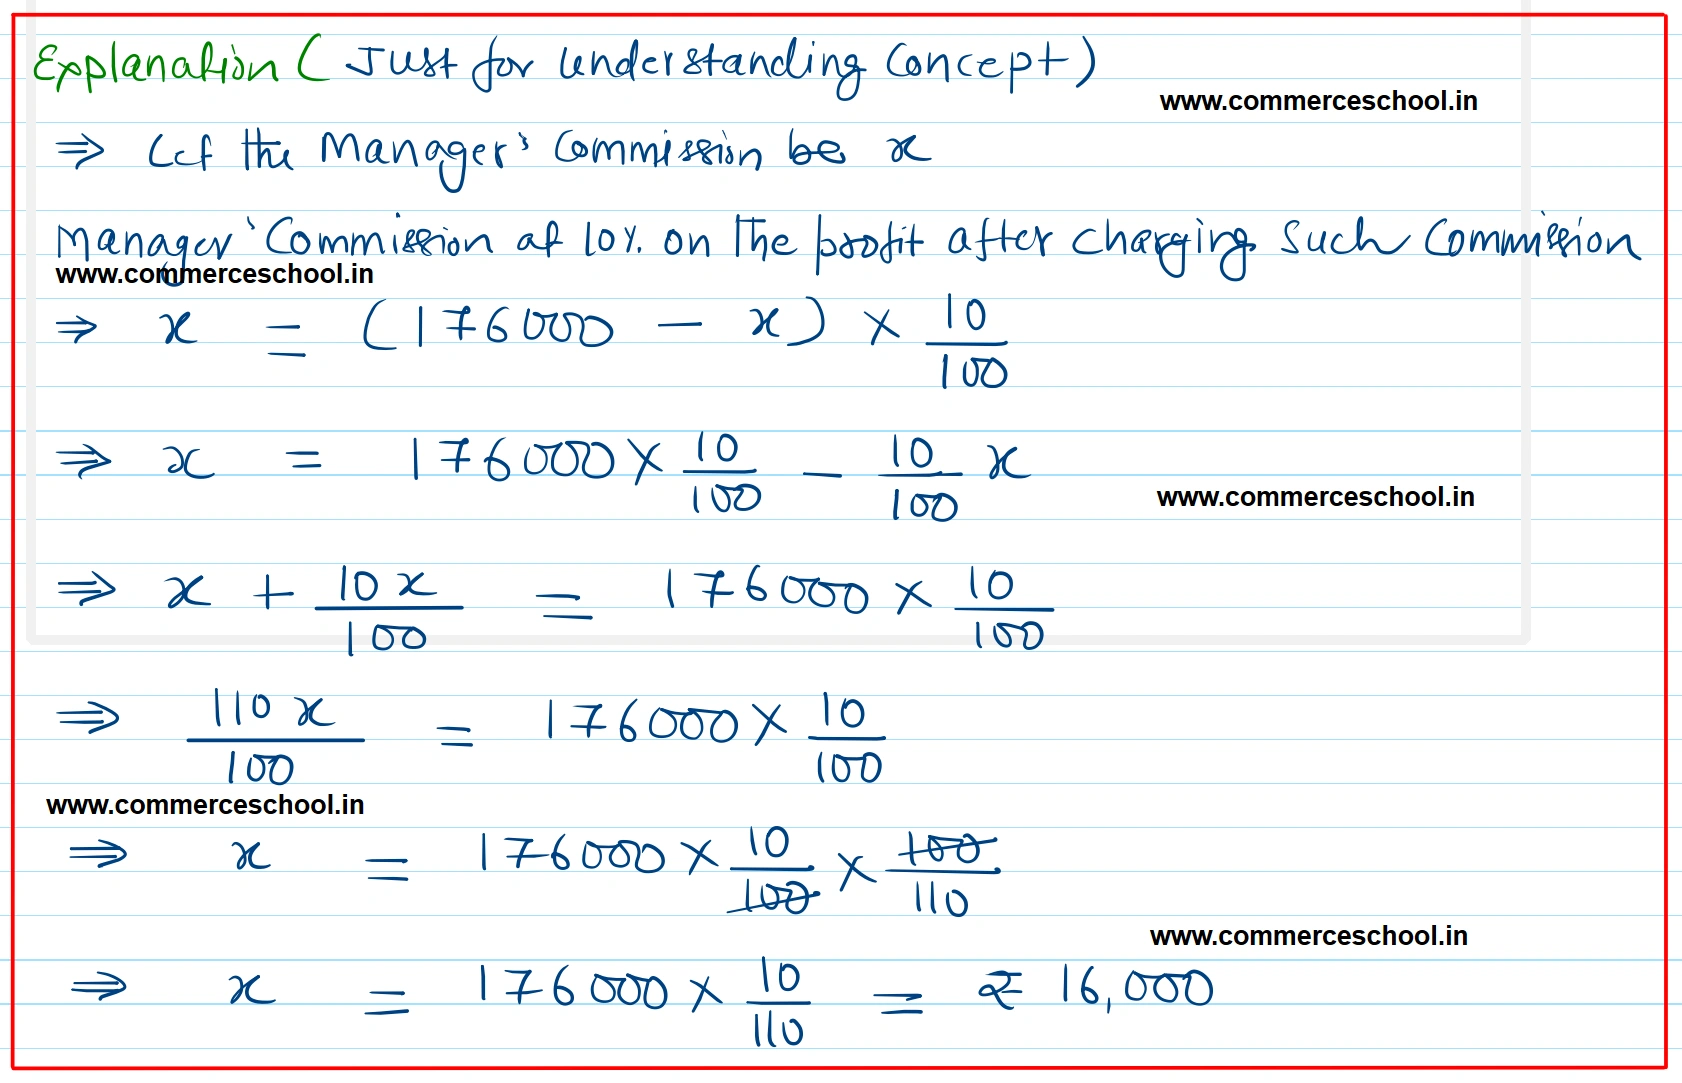 Explanation ( Just for understanding Concept )
www.commerceschool.in
⇒ Let the Manager's Commission be x
Manager's Commission at 10% on the profit after charging Such Commission
www.commerceschool.in
⇒ x = (176000 - x) × 10/100
⇒ x = 176000 × 10/100 - 10/100 x
www.commerceschool.in
⇒ x + 10x/100 = 176000 × 10/100
⇒ 110x/100 = 176000 × 10/100
www.commerceschool.in
⇒ x = 176000 × 10/100 × 100/110
www.commerceschool.in
⇒ x = 176000 × 10/110 = ₹ 16,000